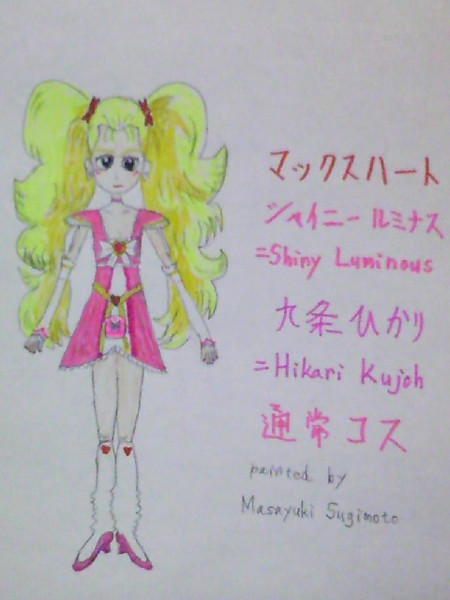 マックスハート
シャイニールミナス
=Shiny Luminous
九条ひかり
=Hikari Kujoh
通常コス
painted by
Masayuki Sugimoto